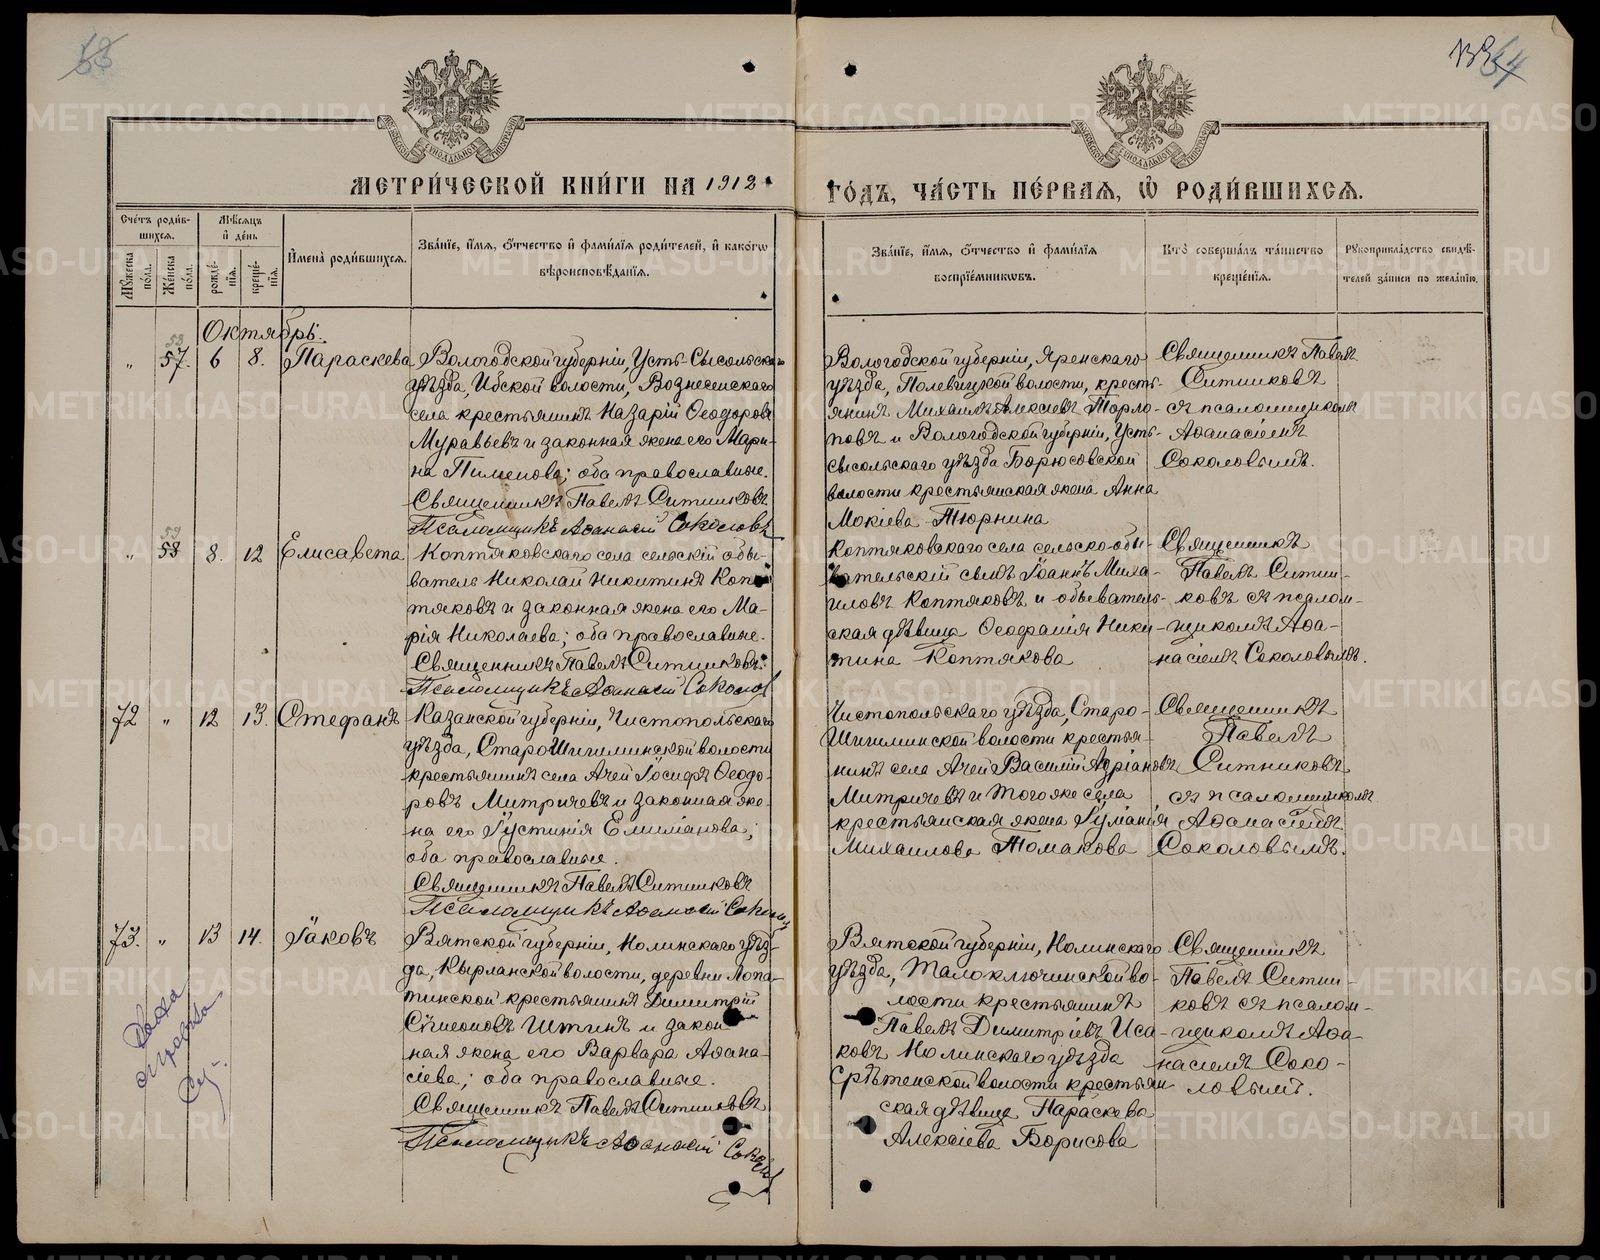 МЕТРИ́ЧЕСКОЙ КНИ́ГИ НА 1912
ГО́ДЪ, ЧА́СТЬ ПЕ́РВАѦ, Ѡ҆ РОДИ́ВШИХСѦ.
Сче́тъ роди́в-
шихсѧ.
Мꙋ́жеска по́ла.
Же́нска по́ла.
Мѣ́сѧцъ
и҆ де́нь
рожде́-
нїѧ.
креще́-
нїѧ.
И҆мена̀ роди́вшихсѧ.
Зва́нїе, и҆́мѧ, ѻ҆́тчество и҆ фами́лїѧ роди́телей, и҆ како́гѡ
вѣроисповѣ́данїѧ.
Зва́нїе, и҆́мѧ, ѻ҆́тчество и҆ фами́лїѧ
воспрїе́мникѡвъ.
Кто̀ соверша́лъ та́инство
креще́нїѧ.
Рꙋкоприкла́дство свидѣ́-
телей за́писи по жела́нїю.
Октябрь.
57. 6 8. Параскева
Вологодской губерніи, Усть-Сысольскаго
уѣзда, Ибской волости, Вознесенскаго
села крестьянинъ Назарій Ѳеодоровъ
Муравьевъ и законная жена его Мари-
на Пименова; оба православные.
Священникъ Павелъ Ситниковъ
Псаломщикъ Аѳанасій Соколовъ
Вологодской губерніи, Яренскаго
уѣзда, Палевицкой волости, кресть-
янинъ Михаилъ Алексіевъ Торло-
повъ и Вологодской губерніи, Усть-
сысольскаго уѣзда
волости крестьянская жена Анна
Мокіева Тюрнина
Священникъ Павелъ
Ситниковъ
съ псаломщикомъ
Аѳанасіемъ
Соколовымъ.
58 8. 12 Елисавета
Коптяковскаго села сельскій обы-
ватель Николай Никитинъ Коп-
тяковъ и законная жена его Ма-
рія Николаева; оба православные.
Священникъ Павелъ Ситниковъ
Псаломщикъ Аѳанасій Соколовъ
Коптяковскаго села сельско-обы-
вательскій сынъ Іоаннъ Миха-
иловъ Коптяковъ и обыватель-
ская дѣвица Ники-
тина Коптякова
Священникъ
Павелъ Ситни-
ковъ съ псалом-
щикомъ Аѳа-
насіемъ Соколовымъ.
72 12 13. Стефанъ
Казанской губерніи, Чистопольскаго
уѣзда, Старо Шигилинской волости
крестьянинъ села Ачей Іосифъ Ѳеодо-
ровъ Митричевъ и законная же-
на его Іустинія Емиліанова;
оба православные.
Священникъ Павелъ Ситниковъ
Псаломщикъ Аѳанасій Соколовъ
Чистопольскаго уѣзда, Старо-
Шигилинской волости крестья-
нинъ села Ачей Василій Адріановъ
Митричевъ и того же села
крестьянская жена
Михаилова Томакова
Священникъ
Павелъ
Ситниковъ
съ псаломщикомъ
Аѳанасіемъ
Соколовымъ.
73. 13 14. Іаковъ
Вятской губерніи, Нолинскаго уѣз-
да, Кырланской волости, деревни Лопа-
тинской крестьянинъ Димитрій
Сѵмеоновъ Штинъ и закон-
ная жена его Варвара Аѳана-
сіева; оба православные.
Священникъ Павелъ Ситниковъ
Псаломщикъ Аѳанасій Соколовъ
Вятской губерніи, Нолинскаго
уѣзда, Талоключинской во-
лости крестьянинъ
Павелъ Димитріевъ Иса-
ковъ Нолинскаго уѣзда
Срѣтенской волости крестьян-
ская дѣвица Параскева
Алексіева Борисова
Священникъ
Павелъ Ситни-
ковъ съ псалом-
щикомъ Аѳа-
насіемъ Соко-
ловымъ.
METRIKI.GASO-URAL.RU